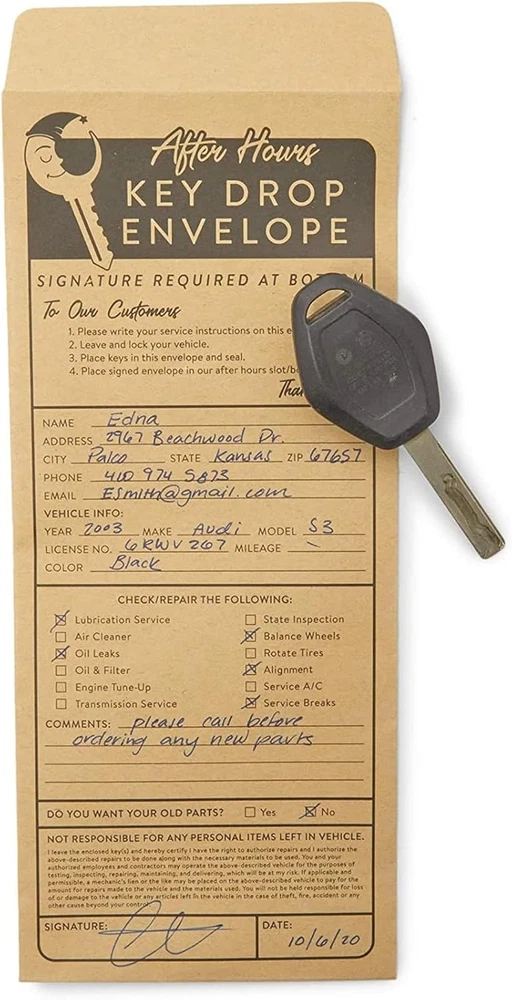 After Hours
KEY DROP
ENVELOPE
SIGNATURE REQUIRED AT BOTTOM
To Our Customers
1. Please write your service instructions on this e
2. Leave and lock your vehicle.
3. Place keys in this envelope and seal.
4. Place signed envelope in our after hours slot/b
Tha
NAME Edna
ADDRESS 2967 Beachwood Dr.
CITY Palco STATE Kansas ZIP 67657
PHONE 410 974 5873
EMAIL ESmith@gmail.com
VEHICLE INFO:
YEAR 2003 MAKE Audi MODEL S3
LICENSE NO. 6RWV267 MILEAGE
COLOR Black
CHECK/REPAIR THE FOLLOWING:
Lubrication Service State Inspection
Air Cleaner Balance Wheels
Oil Leaks Rotate Tires
Oil & Filter Alignment
Engine Tune-Up Service A/C
Transmission Service Service Breaks
COMMENTS: please call before
ordering any new parts
DO YOU WANT YOUR OLD PARTS? Yes No
NOT RESPONSIBLE FOR ANY PERSONAL ITEMS LEFT IN VEHICLE.
I leave the enclosed key(s) and hereby certify I have the right to authorize repairs and I authorize the
above-described repairs to be done along with the necessary materials to be used. You and your
authorized employees and contractors may operate the above-described vehicle for the purposes of
testing, inspecting, repairing, maintaining, and delivering, which will be at my risk. If applicable and
permissible, a mechanic's lien or the like may be placed on the above-described vehicle to pay for the
amount for repairs made to the vehicle and the materials used. You will not be held responsible for loss
of or damage to the vehicle or any articles left in the vehicle in the case of theft, fire, accident or any
other cause beyond your control.
SIGNATURE: DATE:
10/6/20